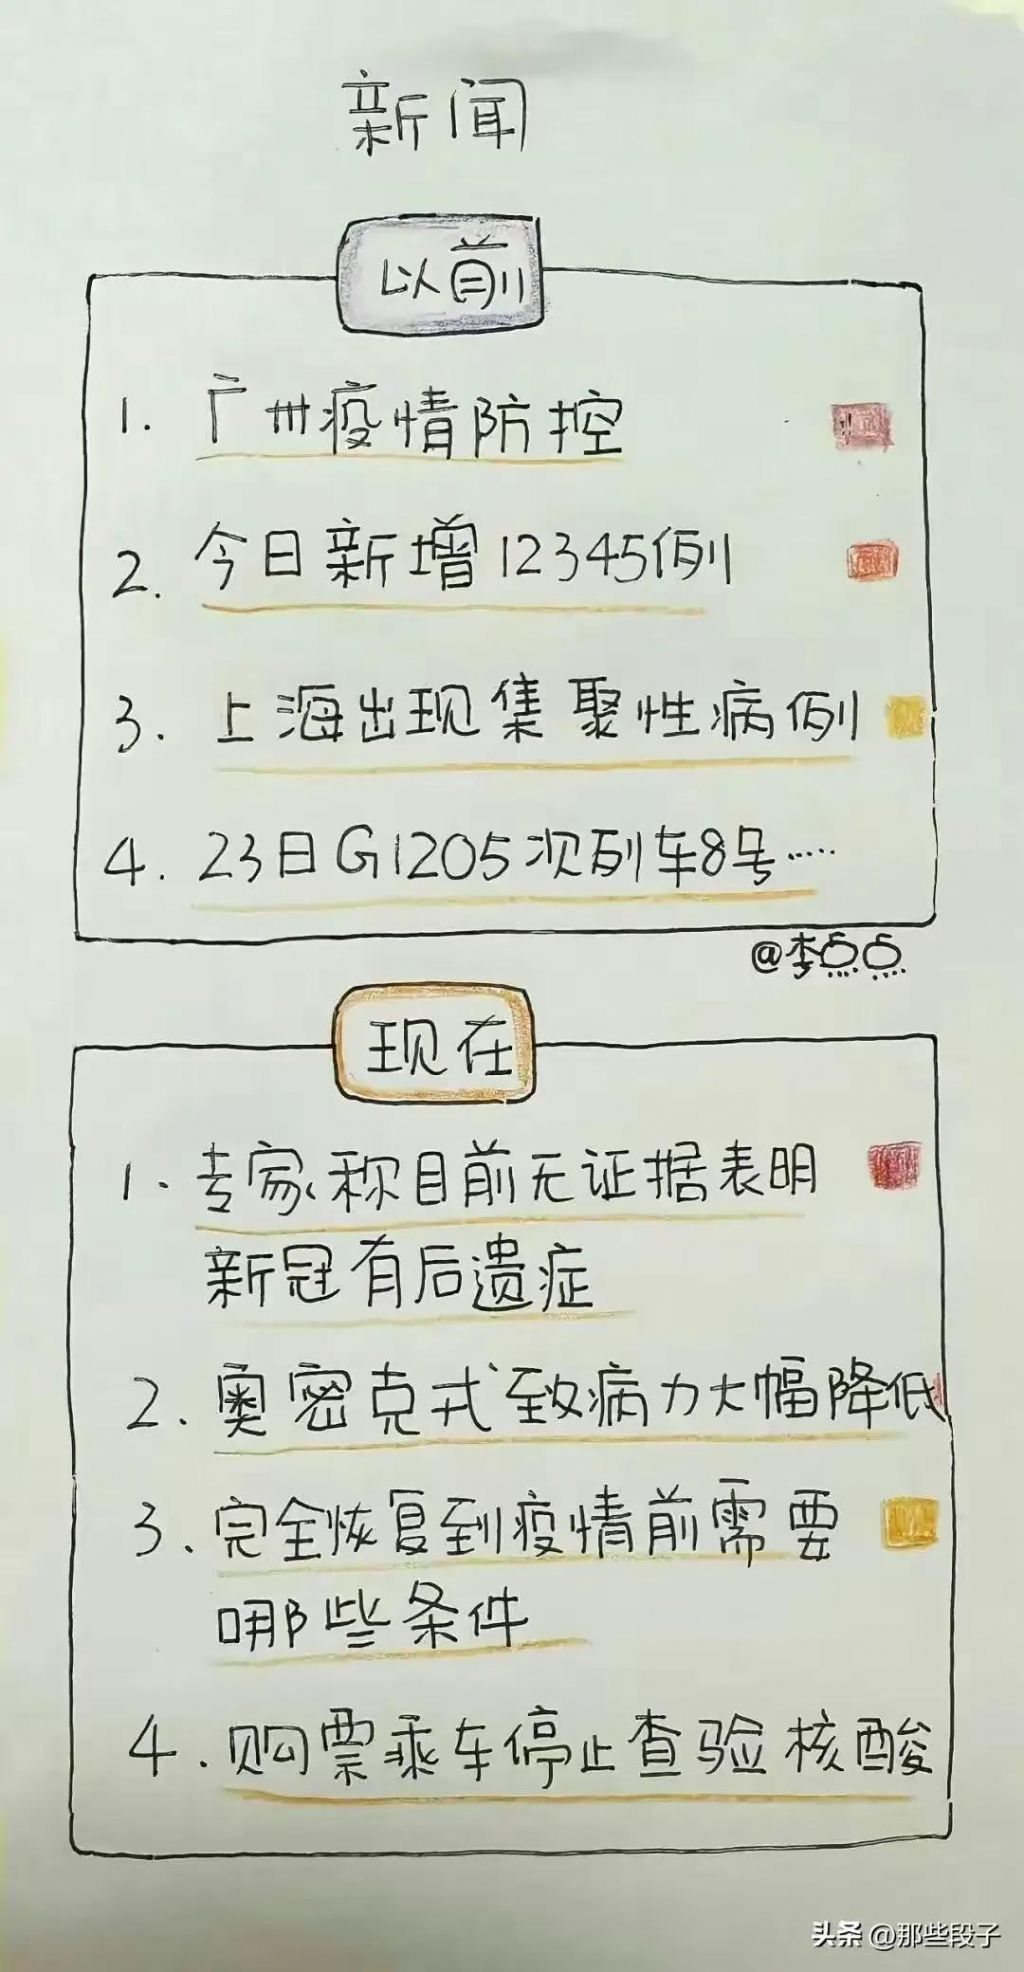 新闻
以前
1. 广州疫情防控
2. 今日新增12345例
3. 上海出现集聚性病例
4. 23日G1205次列车8号……
@李点点
现在
1. 专家称目前无证据表明
新冠有后遗症
2. 奥密克戎致病力大幅降低
3. 完全恢复到疫情前需要
哪些条件
4. 购票乘车停止查验核酸
头条 @那些段子